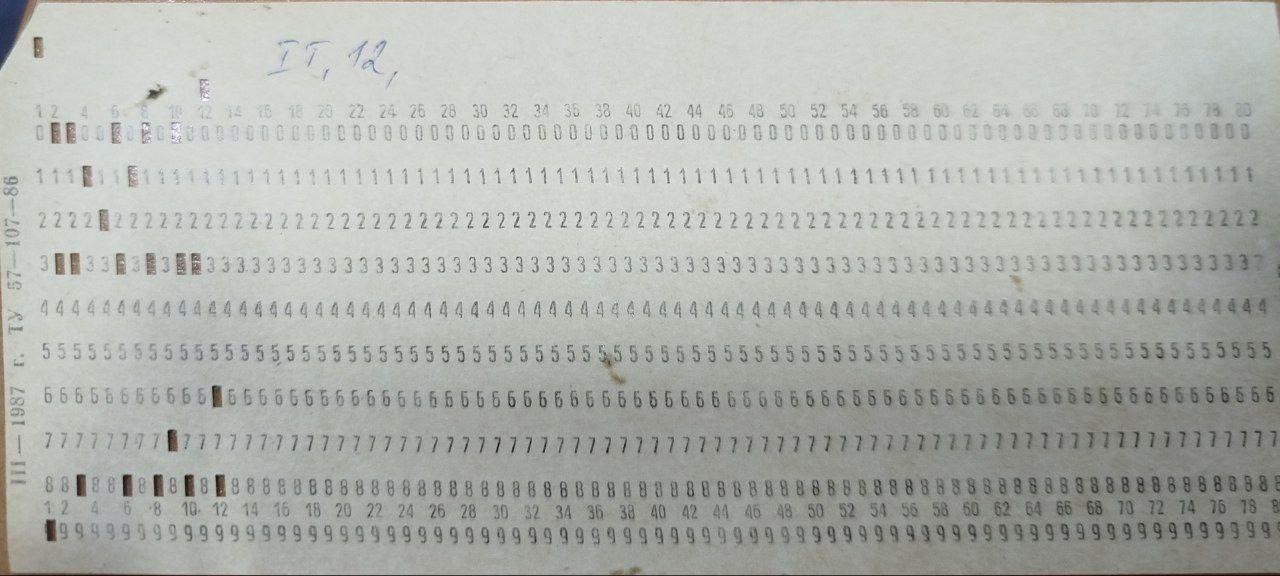 IT, 12,
1 2 4 6 8 10 12 14 16 18 20 22 24 26 28 30 32 34 36 38 40 42 44 46 48 50 52 54 56 58 60 62 64 66 68 70 72 74 76 78 80
0 00 0 0 0000000000000000000000000000000000000000000000000000000000000000000000
111 11 1111111111111111111111111111111111111111111111111111111111111111111111111
2222 222222222222222222222222222222222222222222222222222222222222222222222222222
3 33 3 3 333333333333333333333333333333333333333333333333333333333333333333333
44444444444444444444444444444444444444444444444444444444444444444444444444444444
55555555555555555555555555555555555555555555555555555555555555555555555555555555
66666666666 66666666666666666666666666666666666666666666666666666666666666666666
77777777 77777777777777777777777777777777777777777777777777777777777777777777777
88 88 8 8 8 88888888888888888888888888888888888888888888888888888888888888888888
1 2 4 6 8 10 12 14 16 18 20 22 24 26 28 30 32 34 36 38 40 42 44 46 48 50 52 54 56 58 60 62 64 66 68 70 72 74 76 78 8
9999999999999999999999999999999999999999999999999999999999999999999999999999999
III—1987 г. ТУ 57—107—86